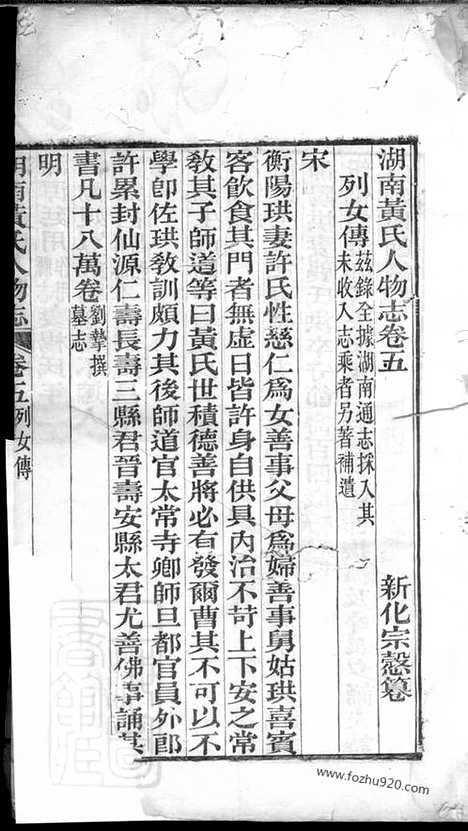 湖南黃氏人物志卷五 新化宗慤纂
列女傳 茲錄全據湖南通志採入其
未收入志乘者另著補遺
宋
衡陽珙妻許氏性慈仁爲女善事父母爲婦善事舅姑珙喜賓
客飲食其門者無虛日皆許身自供具內治不苛上下安之常
敎其子師道等曰黃氏世積德善將必有發爾曹其不可以不
學卽佐珙敎訓頗力其後師道官太常寺卿師旦都官員外郎
許累封仙源仁壽長壽三縣君晉壽安縣太君尤善佛事誦其
書凡十八萬卷 劉摯撰
墓志
明
湖南黃氏人物志 卷五列女傳
www.fozhu920.com